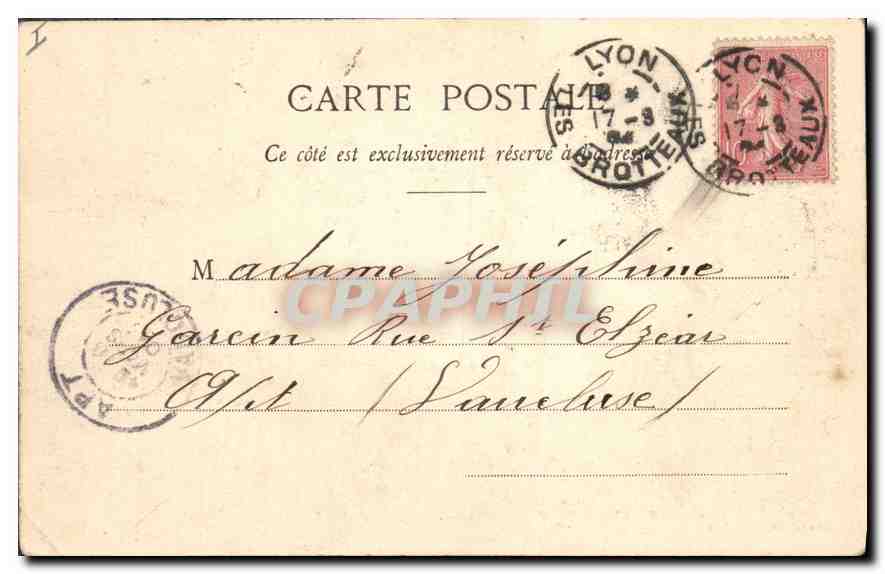 I
CARTE POSTALE
Ce côté est exclusivement réservé à l'adresse
LYON
LES BROTTEAUX
17 - 3
LYON
LES BROTTEAUX
17 - 3
Madame Joséphine
Garcin Rue St Elzéar
Apt (Vaucluse)
APT
VAUCLUSE
CPAPHIL